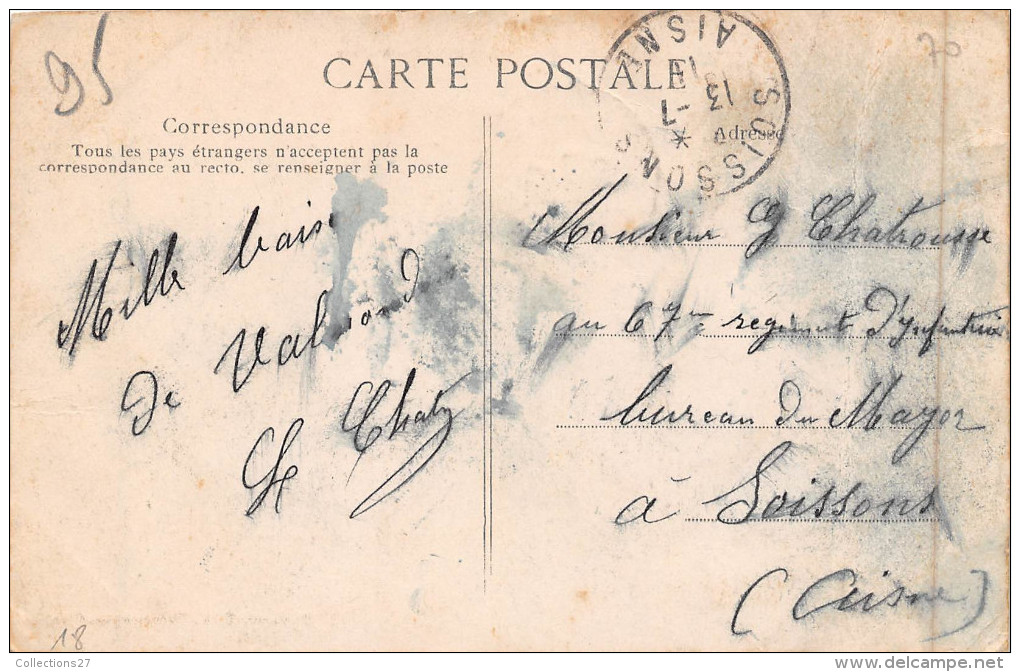 95
70
CARTE POSTALE
SOISSONS
AISNE
13-7
Correspondance
Adresse
Tous les pays étrangers n'acceptent pas la
correspondance au recto, se renseigner à la poste
Mille bais
de
Monsieur G Chatrousse
au 67me régiment d'Infanterie
bureau du Major
à Soissons
(Aisne)
18
Collections27
www.delcampe.net